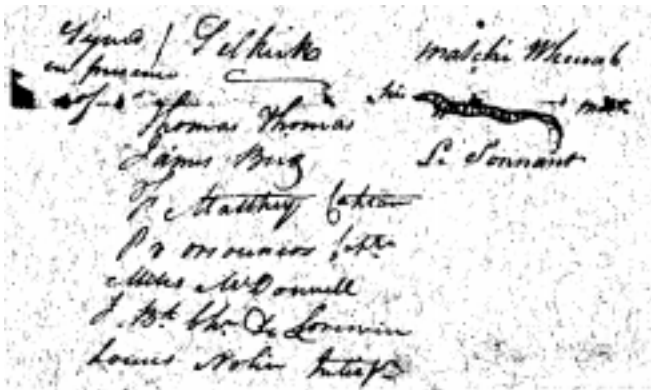 Signed / Selkirk
in presence
of
Thomas Thomas
James Bird
F. Matthey Captain
P. D'Orsonnens Captn
Miles McDonnell
J. Bte Chr De Lorimier
Louis Nolin Interp
Matchi Wheseab
his mark
Le Sonnant